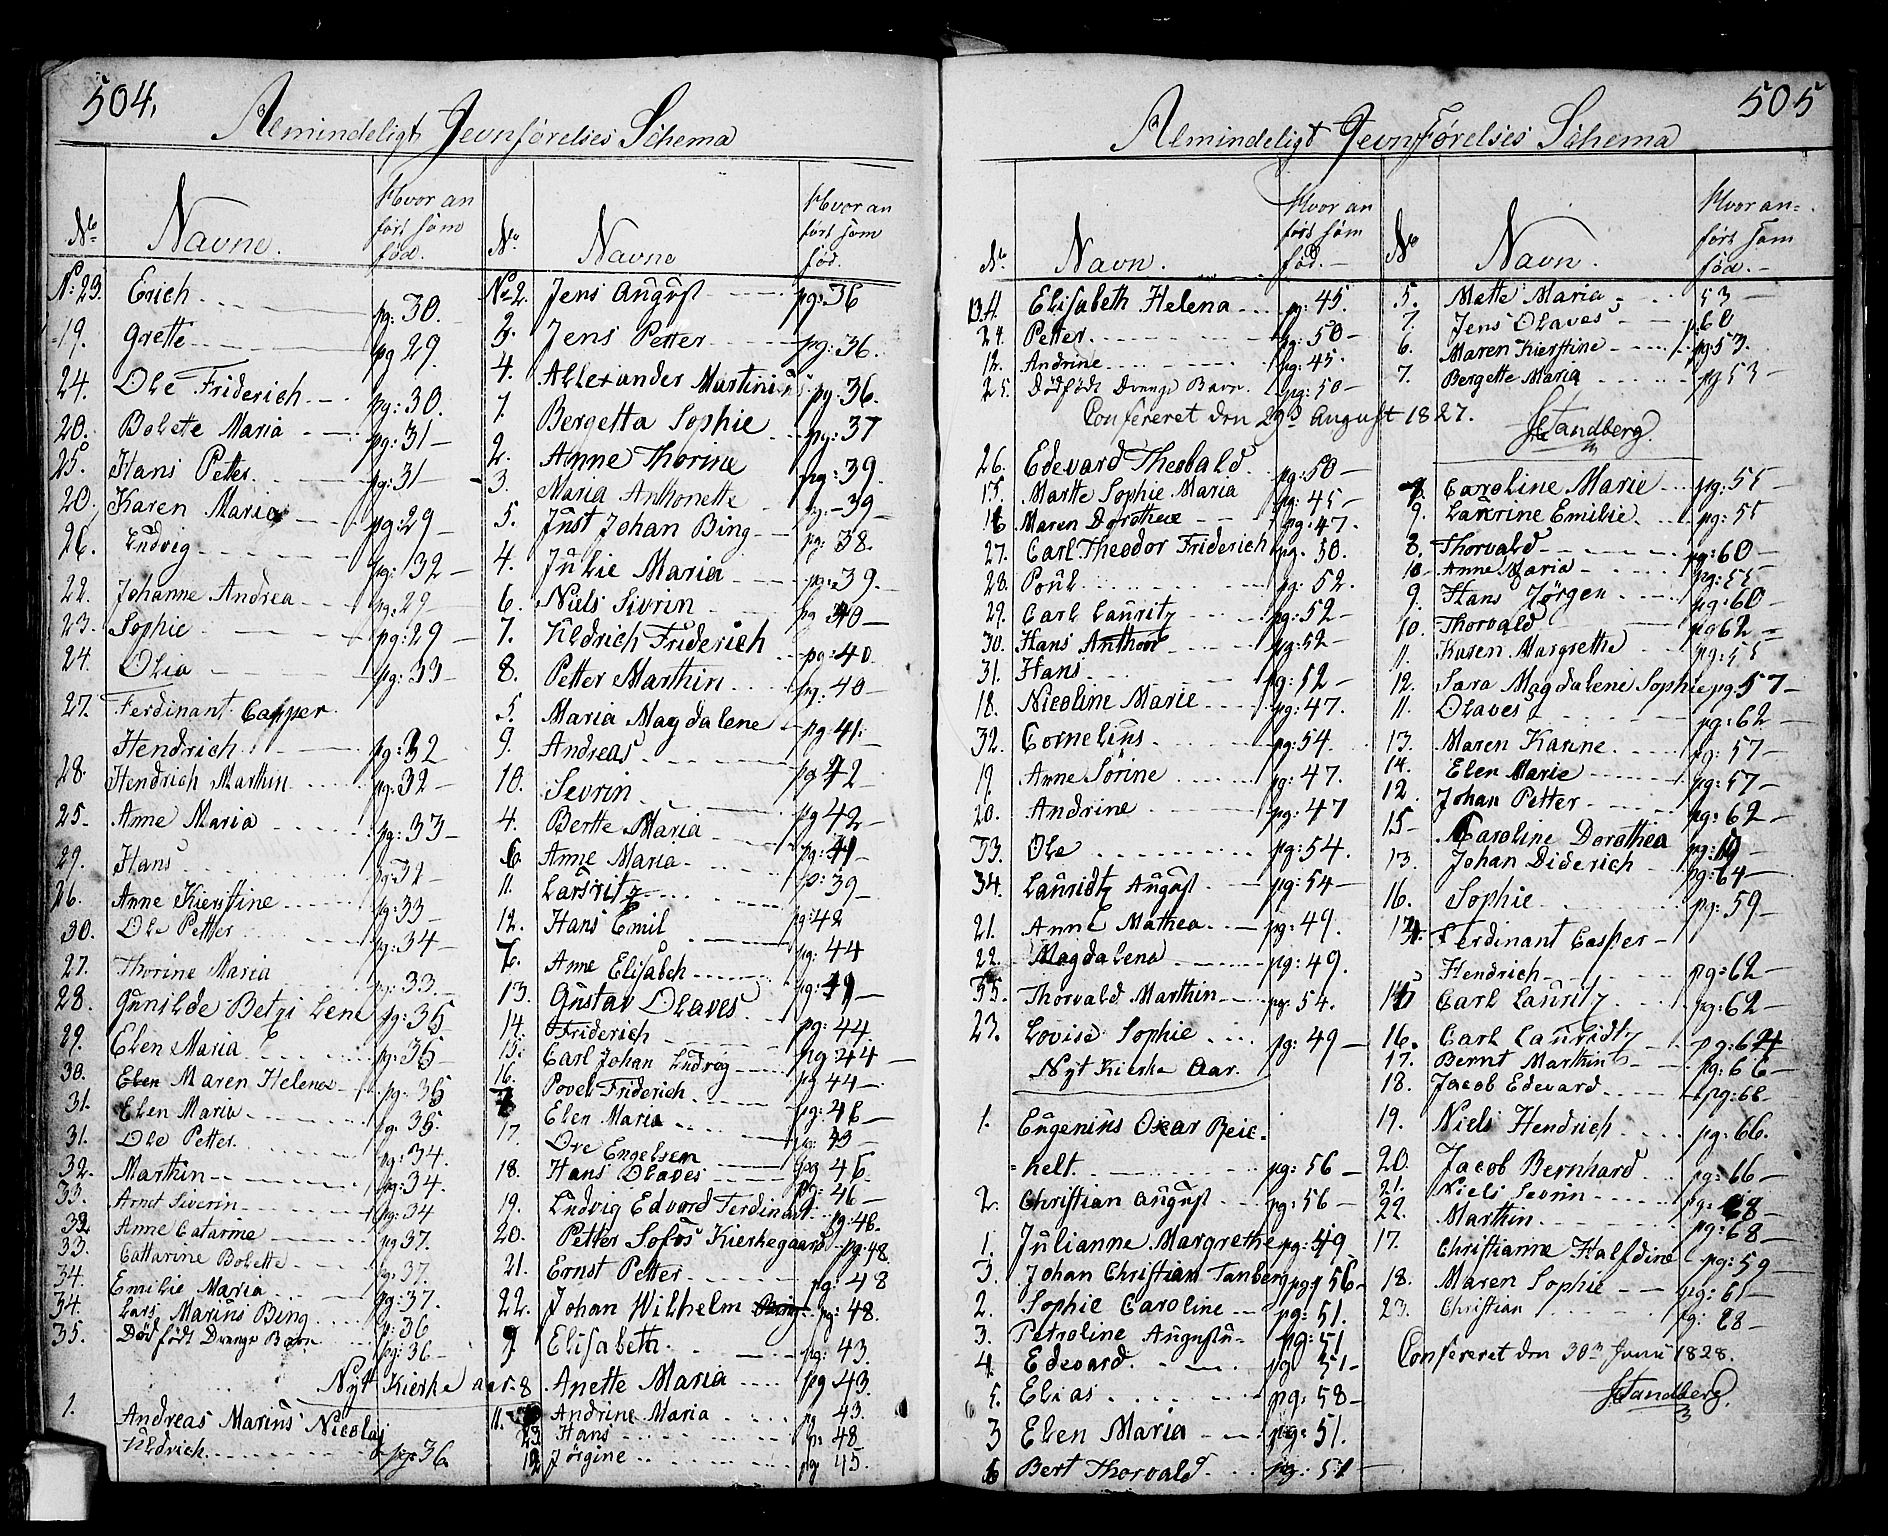 504.
Almindeligt Jevnförelses Schema
No Navne. Hvor anfört som föd.
N: 23. Erich pg: 30.
19. Grette pg 29.
24. Ole Friderich pg: 30.
20. Bolete Maria pg: 31
25. Hans Petter pg: 31
20. Karen Maria pg: 29
26. Ludvig pg: 32
22. Johanne Andrea pg: 29
23. Sophie pg: 29
24. Olia pg: 33
27. Ferdinant Casper
Hendrich pg: 32
28. Hendrich Marthin pg: 32
25. Anne Maria pg: 33
29. Hans pg: 32
26. Anne Kierstine pg: 33
30. Ole Petter pg: 34
27. Thorine Maria pg: 33
28. Gunilde Betzi Lene pg: 35
29. Elen Maria pg: 35
30. Maren Helena pg: 35
31. Elen Maria pg: 35.
31. Ole Petter pg: 34.
32. Marthin pg: 34.
33. Arnt Siverin pg: 34
32 Anne Catarine pg 37.
33. Cattarine Bolette pg: 37.
34. Emilie Maria pg: 37.
34. Lars Marius Bing p: 36
35. Dödfödt Drenge Barn pg: 36
Nyt Kierke aar
1. Andreas Marius Nicolai
Uldrich pg: 36
No. Navne Hvor anfört som föd.
No 2. Jens August pg: 36
3. Jens Petter pg: 36.
4. Allexander Martinius pg: 36.
1. Bergetta Sophie pg: 37
2. Anne Thorine pg: 39.
3. Maria Anthonette pg: 39
5. Just Johan Bing pg: 38.
4. Julie Maria pg: 39.
6. Niels Sivrin pg 40
7. Uldrich Friderich pg: 40
8. Petter Marthin pg: 40
5. Maria Magdalene pg: 41.
9. Andreas pg 42
10. Sevrin pg 42
4. Berte Maria pg: 41
6. Anne Maria p: 39
11. Lauritz pg: 42
12. Hans Emil pg: 44
7. Anne Elisabeh pg: 41
13. Gustav Olaves pg: 44.
14. Friderich pg: 44
15. Carl Johan Ludvig pg 44
16. Povel Friderich pg: 46
Elen Maria pg: 43
17. Ove Engelsen pg 46.
18. Hans Olaves pg: 46
19. Ludvig Edvord Ferdinant pg: 46.
20. Petter Sofus Kierkegaard pg: 48
21. Ernst Petter pg: 48
22. Johan Wilhelm pg: 48.
9 Elisabeth pg: 43.
8 Anette Maria pg 43.
11. Andrine Maria pg 43.
23 Hans pg 48
12 Jörgine pg 45.
505
Almindeligt JevnFörelses Schema
No. Navn. Hvor anfört som föd.
Elisabeth Helena pg: 45.
24. Petter pg: 50
12. Andrine pg: 45.
25. Dödfödt Drenge Barn. pg: 50
Confereret den 29de August 1827.
JStandberg
26. Edevard Theobald pg: 50
15. Martte Sophie Maria pg: 45
16 Maren Dorothea pg: 47.
27. Carl Theodor Friderich pg. 50.
28. Poul pg: 52.
29. Carl Lauritz pg: 52
30. Hans Anthon pg: 52
31. Hans pg: 52
18. Nicoline Marie pg: 47.
32. Cornelius pg: 54.
19. Anne Sörine pg: 47.
20. Andrine pg: 47
33. Ole pg: 54.
34. Lauridtz August pg: 54
21. Anne Mathea pg: 49.
22. Magdalena pg: 49.
35. Thorvald Marthin pg: 54.
23. Lovise Sophie pg: 49
Nyt Kierke Aar.
1. Eugenius Oxar Reic-
helt. pg: 56
2. Christian August pg: 56
1. Julianne Margrethe pg: 49
3. Johan Christian Tanberg pg 56
2. Sophie Caroline pg: 51.
3. Petroline Augusta pg: 51
4. Edevard pg 51
5. Elias pg: 58
3 Elen Maria pg: 51.
6 Bert Thorvald pg: 51
No Navn. Hvor anfört som föd.
5. Mette Maria 53
7. Jens Olaves p: 60
6. Maren Kierstine pg: 53.
7. Bergette Maria pg 53
Caroline Marie pg: 55
9. Laurine Emilie pg: 55
8. Thorvald pg: 60
10 Anne Maria pg: 55
9. Hans Jörgen pg: 60
10. Thorvald pg 62
11. Karen Margrethe pg: 55
12. Sara Magdalene Sophie pg. 57
11. Olaves pg: 62
13. Maren Karine pg: 57
14. Elen Marie pg: 57
12. Johan Petter pg: 62
15 Caroline Dorothea
13. Johan Diderich pg: 64
16. Sophie pg: 59
Ferdinant Casper
Hendrich pg: 62
15 Carl Lauritz pg: 62
16. Carl Lauridtz pg: 64
17. Bernt Marthin pg: 66
18. Jacob Edevard pg: 66
19. Niels Hendrich pg: 66.
20. Jacob Bernhard pg: 66
21. Niels Sevrin pg: 68
22. Marthin pg: 68
17. Christianne Halfdine pg: 59
18. Maren Sophie pg: 61
23. Christian pg: 68
Confereret den 30te Junii 1828.
JStandberg